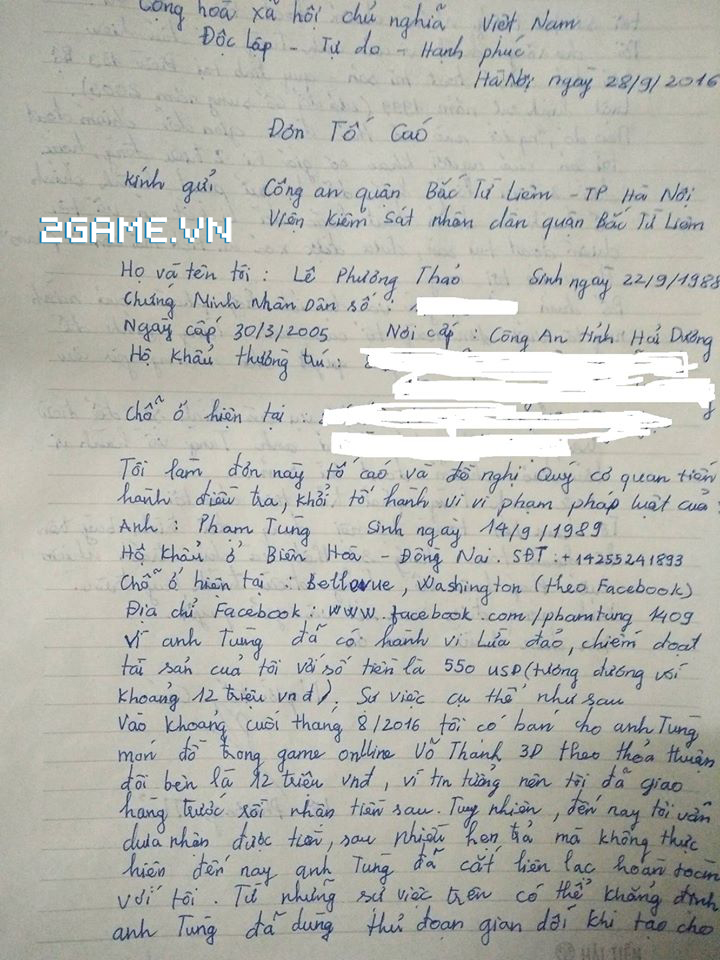 Cộng hoà xã hội chủ nghĩa Việt Nam
Độc lập - Tự do - Hạnh phúc
Hà Nội, ngày 28/9/2016
Đơn Tố Cáo
Kính gửi Công an quận Bắc Từ Liêm - TP Hà Nội
Viện kiểm sát nhân dân quận Bắc Từ Liêm
2GAME.VN
Họ và tên tôi : Lê Phương Thảo Sinh ngày 22/9/1988
Chứng Minh nhân Dân số :
Ngày cấp 30/3/2005 Nơi cấp : Công An tỉnh Hải Dương
Hộ khẩu thường trú :
Chỗ ở hiện tại :
Tôi làm đơn này tố cáo và đề nghị Quý cơ quan tiến
hành điều tra, khởi tố hành vi vi phạm pháp luật của :
Anh : Phạm Tùng Sinh ngày 14/9/1989
Hộ khẩu ở Biên Hoà - Đồng Nai. SĐT : +14255241893
Chỗ ở hiện tại : Bellevue, Washington (theo Facebook)
Địa chỉ Facebook : www.facebook.com/phamtung 1409
Vì anh Tùng đã có hành vi Lừa đảo, chiếm đoạt
tài sản của tôi với số tiền là 550 USD (tương đương với
khoảng 12 triệu vnđ). Sự việc cụ thể như sau
Vào khoảng cuối tháng 8/2016 tôi có bán cho anh Tùng
món đồ trong game onlline Võ Thánh 3D theo thỏa thuận
đôi bên là 12 triệu vnđ, vì tin tưởng nên tôi đã giao
hàng trước rồi nhận tiền sau. Tuy nhiên, đến nay tôi vẫn
chưa nhận được tiền, sau nhiều hẹn trả mà không thực
hiện đến nay anh Tùng đã cắt liên lạc hoàn toàn
với tôi. Từ những sự việc trên có thể khẳng định
anh Tùng đã dùng thủ đoạn gian dối khi tạo cho